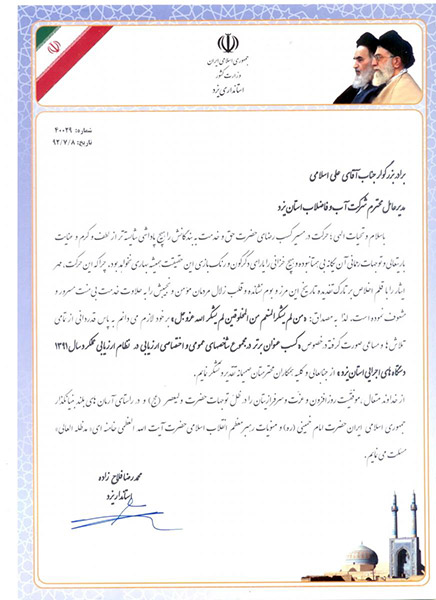 جمهوری اسلامی ایران
وزارت کشور
استانداری یزد
شماره: ۴۰۰۲۹
تاریخ: ۹۲/۷/۸
برادر بزرگوار جناب آقای علی اسلامی
مدیرعامل محترم شرکت آب و فاضلاب استان یزد
باسلام و تحیات الهی؛ حرکت در مسیر کسب رضای حضرت حق و خدمت به بندگانش را هیچ پاداشی شایسته تر از لطف و کرم و عنایت
باریتعالی و توجهات رحمانی آن یگانه بی همتا نبوده و هیچ خزانی را یارای دگرگون و رنگ بازی این حقیقت همیشه بهاری نخواهد بود. چرا که این حرکت، مهر
ایثار را با قلم اخلاص بر تارک تقدیر و تاریخ این مرز و بوم نشانده و قلب زلال مردمان مومن و نجیبش را به حلاوت خدمت بی منت مسرور و
مشعوف نموده است. لذا به مصداق: «من لم یشکر المنعم من المخلوقین لم یشکر الله عز و جل» بر خود لازم می دانم به پاس قدردانی از تمامی
تلاش ها و مساعی صورت گرفته در خصوص «کسب عنوان برتر در مجموع شاخصهای عمومی و اختصاصی ارزیابی در نظام ارزیابی عملکرد سال ۱۳۹۱
دستگاه های اجرایی استان یزد» از جنابعالی و کلیه همکاران محترمتان صمیمانه تقدیر و تشکر نمایم.
از خداوند متعال، موفقیت روز افزون و عزت و سرفرازیتان را در ظل توجهات حضرت ولیعصر (عج) و در راستای آرمان های بلند بنیانگذار
جمهوری اسلامی ایران حضرت امام خمینی (ره) و منویات رهبر معظم انقلاب اسلامی حضرت آیت الله العظمی خامنه ای (مدظله العالی)
مسئلت می نمایم.
محمدرضا فلاح زاده
استاندار یزد